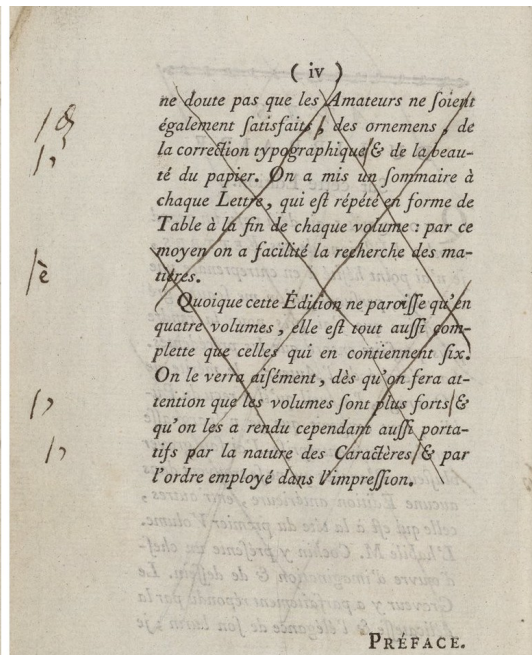 ( iv )
ne doute pas que les Amateurs ne ſoient
également ſatisfaits, des ornemens, de
la correction typographique & de la beau-
té du papier. On a mis un ſommaire à
chaque Lettre, qui eſt répété en forme de
Table à la fin de chaque volume : par ce
moyen on a facilité la recherche des ma-
tieres.
Quoique cette Édition ne paroiſſe qu'en
quatre volumes, elle eſt tout auſſi com-
plette que celles qui en contiennent ſix.
On le verra aiſément, dès qu'on fera at-
tention que les volumes ſont plus forts &
qu'on les a rendu cependant auſſi porta-
tifs par la nature des Caractères & par
l'ordre employé dans l'impreſſion.
è
PRÉFACE.